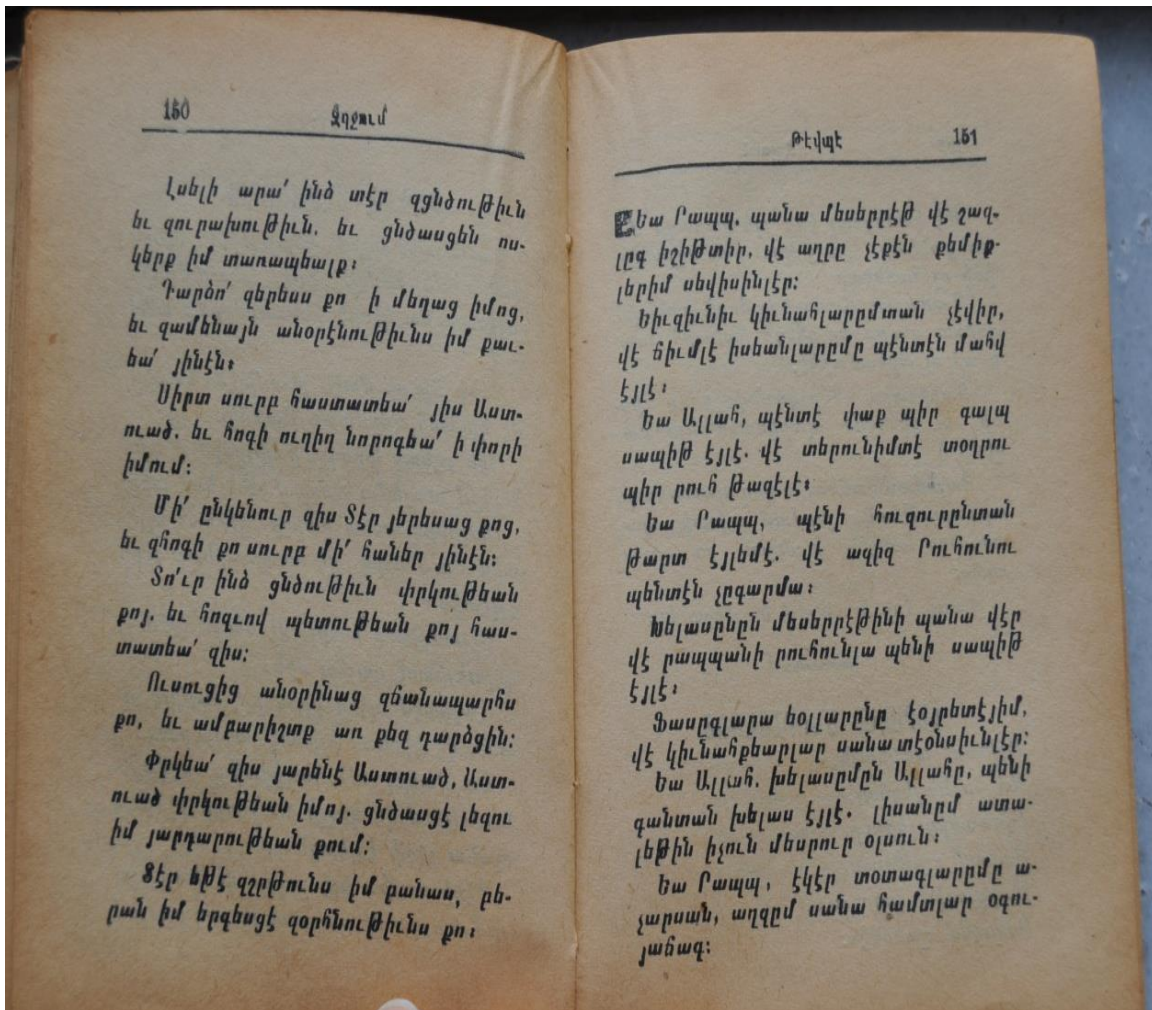 150
Զղջում
Լսելի արա՛ ինձ տէր զցնծութիւն
եւ զուրախութիւն. եւ ցնծասցեն ոս-
կերք իմ տառապեալք։
Դարձո՛ զերեսս քո ի մեղաց իմոց,
եւ զամենայն անօրէնութիւնս իմ քաւ-
եա՛ յինէն։
Սիրտ սուրբ հաստատեա՛ յիս Աստ-
ուած. եւ հոգի ուղիղ նորոգեա՛ ի փորի
իմում։
Մի՛ ընկենուր զիս Տէր յերեսաց քոց,
եւ զհոգի քո սուրբ մի՛ հաներ յինէն։
Տո՛ւր ինձ ցնծութիւն փրկութեան
քոյ. եւ հոգւով պետութեան քոյ հաս-
տատեա՛ զիս։
Ուսուցից անօրինաց զճանապարհս
քո, եւ ամբարիշտք առ քեզ դարձցին։
Փրկեա՛ զիս յարենէ Աստուած, Աստ-
ուած փրկութեան իմոյ. ցնծասցէ լեզու
իմ յարդարութեան քում։
Տէր եթէ զշրթունս իմ բանաս, բե-
րան իմ երգեսցէ զօրհնութիւնս քո։
Թէվպէ
151
Եա Րապպ, պանա մեսերրէթ վէ շազ-
լըգ իշիթտիր, վէ աղրը չէքէն քեմիք-
լերիմ սեվիսինլէր։
Եիւզիւնիւ կիւնահլարըմտան չէվիր,
վէ ճիւմլէ իսեանլարըմը պէնտէն մահվ
էյլէ։
Եա Ալլահ, պէնտէ փաք պիր գալպ
սապիթ էյլէ. վէ տերունիմտէ տօղրու
պիր րուհ թազէլէ։
Եա Րապպ, պէնի հուզուրընտան
թարտ էյլեմէ. վէ ազիզ Րուհունու
պենտէն չըգարմա։
Խելասընըն մեսերրէթինի պանա վէր
վէ րապպանի րուհունլա պենի սապիթ
էյլէ։
Ֆասըգլարա եօլլարընը էօյրետէյիմ,
վէ կիւնահքեարլար սանա տէօնսիւնլէր։
Եա Ալլահ. խելասըմըն Ալլահը, պենի
գանտան խելաս էյլէ. լիսանըմ ատա-
լեթին իչուն մեսրուր օլսուն։
Եա Րապպ, էկէր տօտագլարըմը ա-
չարսան, աղզըմ սանա համտլար օգու-
յաճագ։